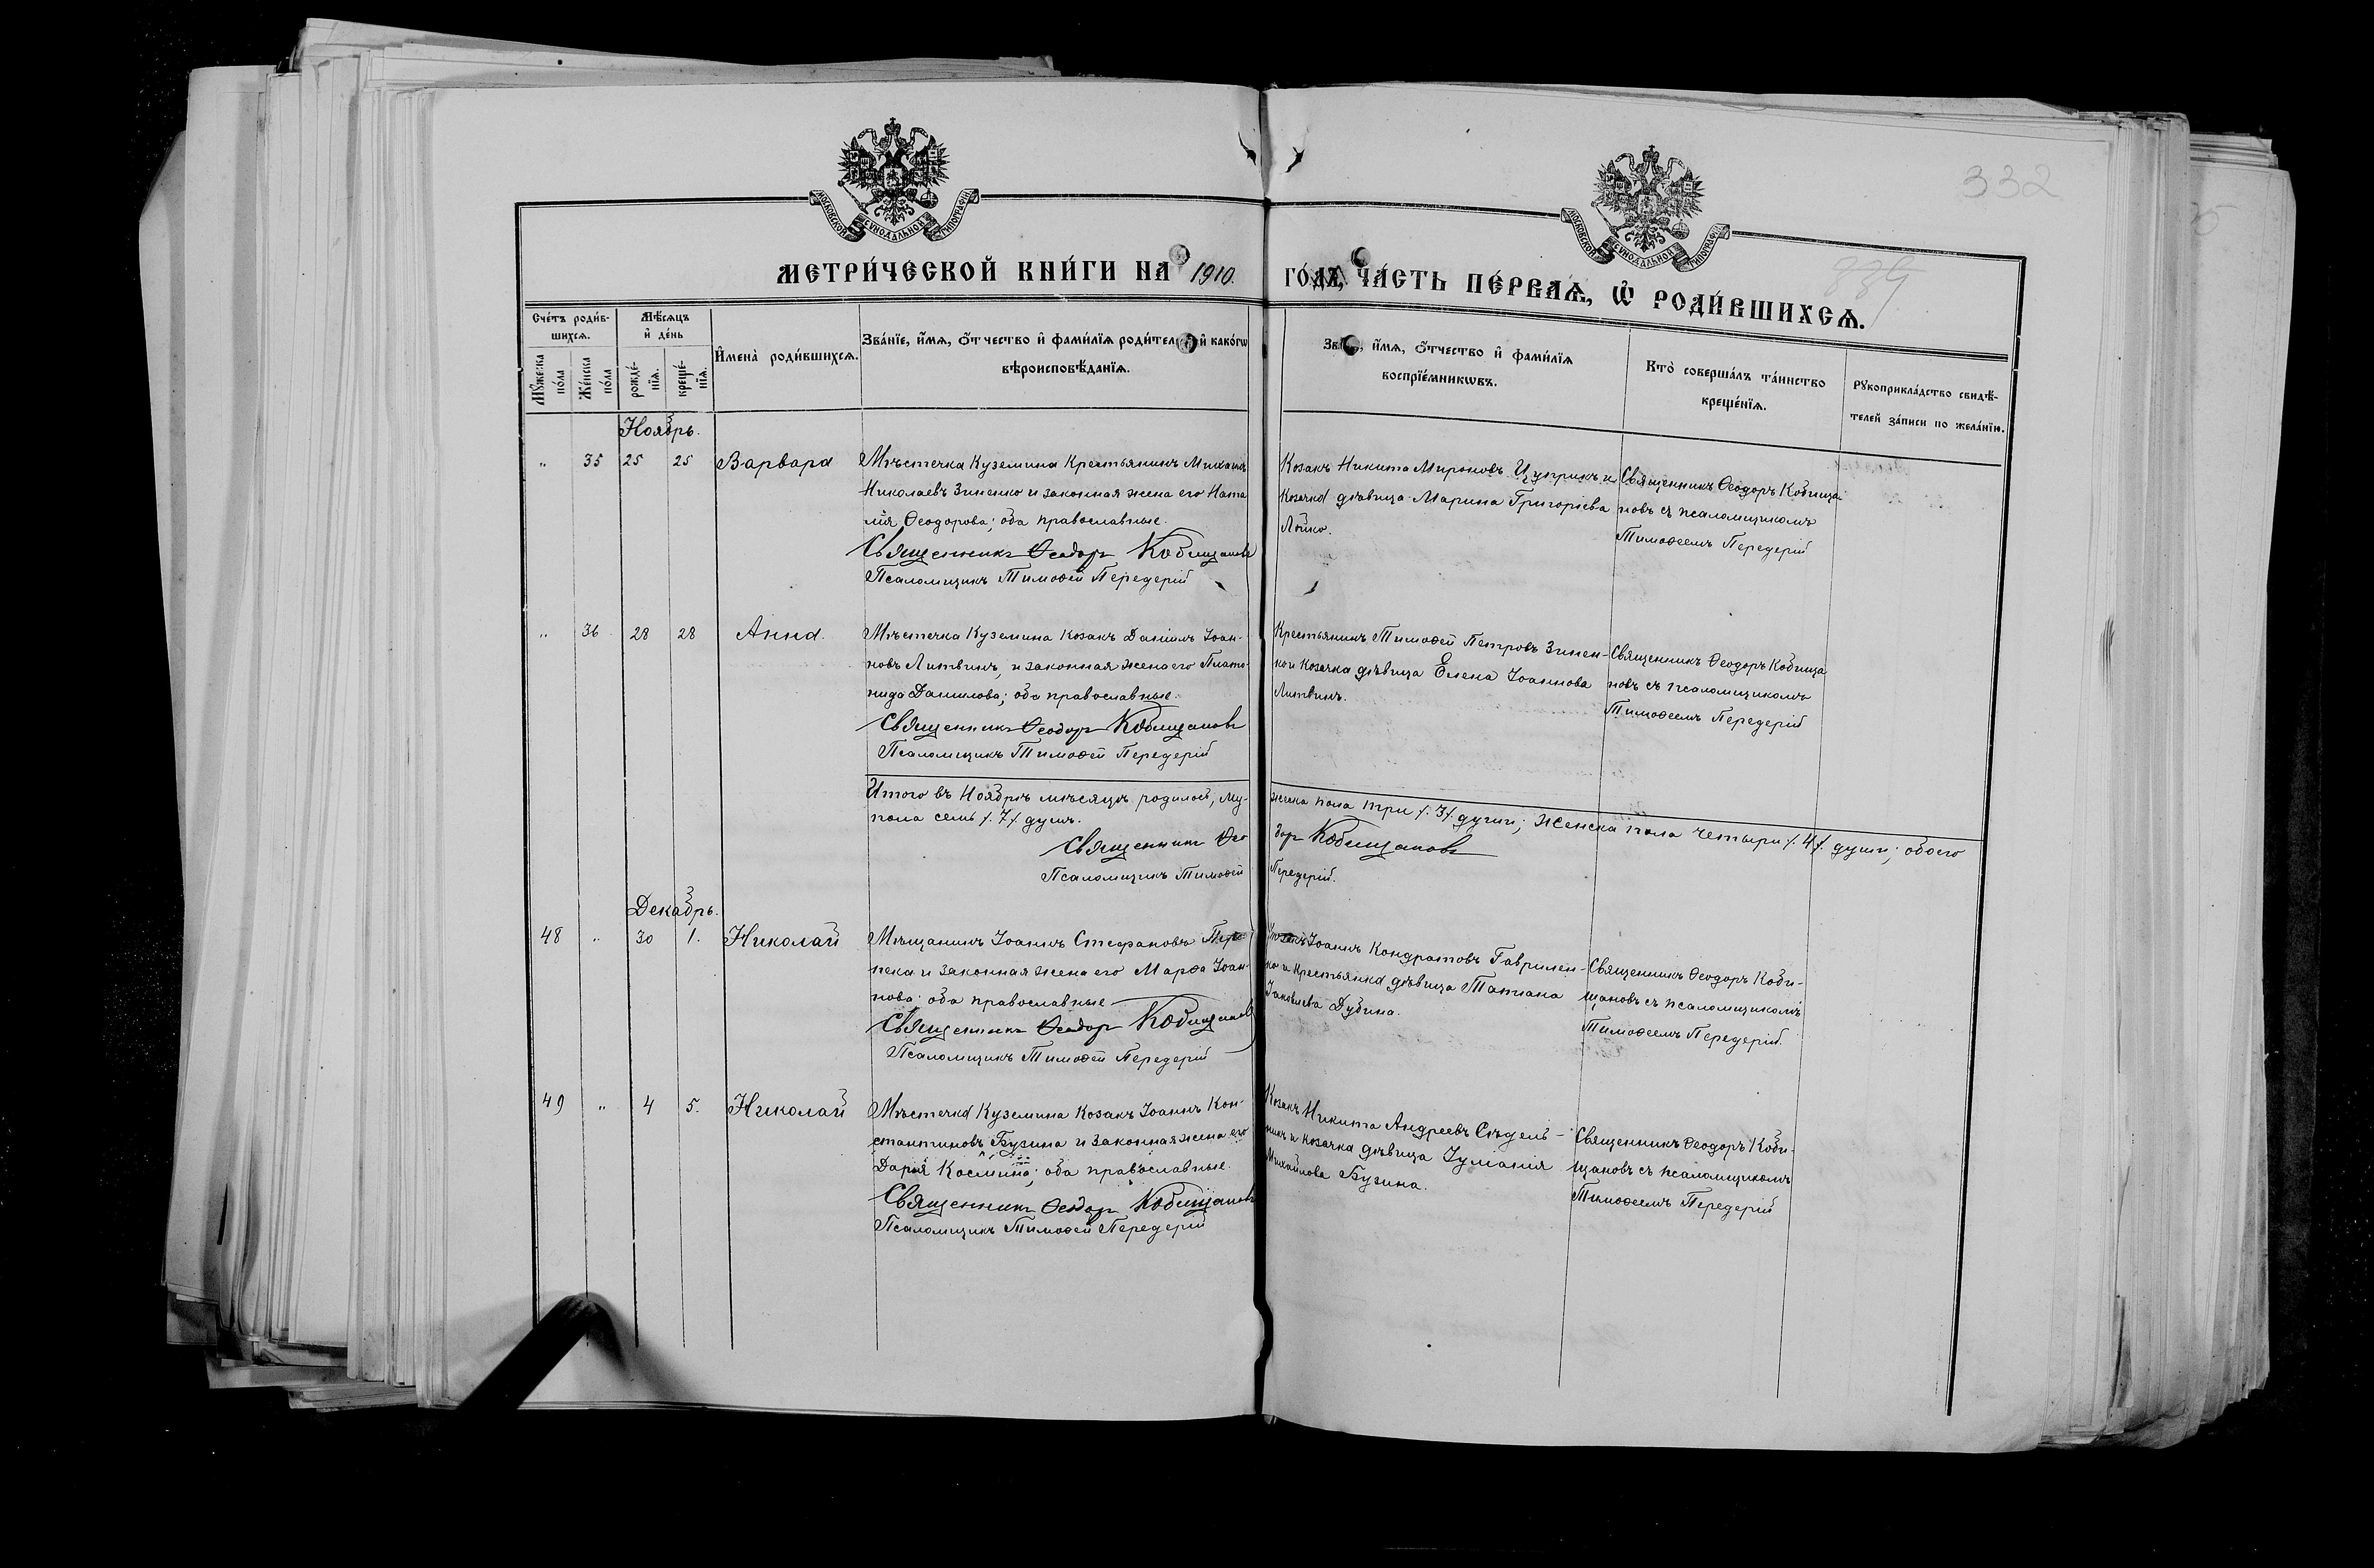 332
МОСКОВСКОЙ СѴНОДАЛЬНОЙ ТИПОГРАФІИ
МОСКОВСКОЙ СѴНОДАЛЬНОЙ ТИПОГРАФІИ
МЕТРИ́ЧЕСКОЙ КНИ́ГИ НА 1910.
ГО́ДЪ, ЧА́СТЬ ПЕ́РВАѦ, Ѡ҆ РОДИ́ВШИХСѦ.
Сче́тъ роди́в-
шихсѧ.
Мꙋ́жеска
по́ла
Же́нска
по́ла
Мѣ́сѧцъ
и҆ де́нь
рожде́-
нїѧ.
креще́-
нїѧ.
И҆мена̀ роди́вшихсѧ.
Зва́нїе, и҆́мѧ, ѻ҆́тчество и҆ фами́лїѧ роди́тел и҆ како́гѡ
вѣроисповѣ́данїѧ.
Зв , и҆́мѧ, ѻ҆́тчество и҆ фами́лїѧ
воспрїе́мникѡвъ.
Кто̀ соверша́лъ та́инство
креще́нїѧ.
Рꙋкоприкла́дство свидѣ́-
телей за́писи по жела́нїю.
Ноябрь.
„ 35 25 25 Варвара
Мѣстечка Куземина Крестьянинъ Михаилъ
Николаевъ Зиненко и законная жена его Ната
лія Ѳеодорова; оба православные.
Священникъ Ѳеодоръ Кобищановъ
Псаломщикъ Тимоѳей Передерій
Козакъ Никита Мироновъ Цуприкъ и
Козачка дѣвица Марина Григоріева
Лойко.
Священникъ Ѳеодоръ Кобища
новъ съ псаломщикомъ
Тимоѳеемъ Передерій
„ 36 28 28 Анна.
Мѣстечка Куземина Козакъ Даніилъ Іоан-
новъ Литвинъ, и законная жена его Плато-
нида Данилова; оба православные.
Священникъ Ѳеодоръ Кобищановъ
Псаломщикъ Тимоѳей Передерій
Крестьянинъ Тимоѳей Петровъ Зинен-
ко и Козачка дѣвица Елена Іоаннова
Литвинъ.
Священникъ Ѳеодоръ Кобища
новъ съ псаломщикомъ
Тимоѳеемъ Передерій
Итого въ Ноябрѣ мѣсяцѣ родилось, му-
жеска пола три /. 3 /. души; женска пола четыри /. 4 /. души; обоего
пола семь /. 7 /. душъ.
Священникъ Ѳео
доръ Кобищановъ
Псаломщикъ Тимоѳей
Передерій.
Декабрь.
48 „ 30 1. Николай
Мѣщанинъ Іоаннъ Стефановъ
пека и законная жена его Марѳа Іоан-
нова; оба православные
Священникъ Ѳеодоръ Кобищановъ
Псаломщикъ Тимоѳей Передерій
Іоаннъ Кондратовъ Гавринен-
ко и Крестьянка дѣвица Татіана
Іаковлева Дубина.
Священникъ Ѳеодоръ Коби-
щановъ съ псаломщикомъ
Тимоѳеемъ Передерій.
49 „ 4 5. Николай
Мѣстечка Куземина Козакъ Іоаннъ Кон-
стантиновъ Бузина и законная жена его
Дарія Космина; оба православные.
Священникъ Ѳеодоръ Кобищановъ
Псаломщикъ Тимоѳей Передерій
Козакъ Никита Андреевъ Сѣдель-
никъ и козачка дѣвица Іуліанія
Михайлова Бузина.
Священникъ Ѳеодоръ Коби-
щановъ съ псаломщикомъ
Тимоѳеемъ Передерій